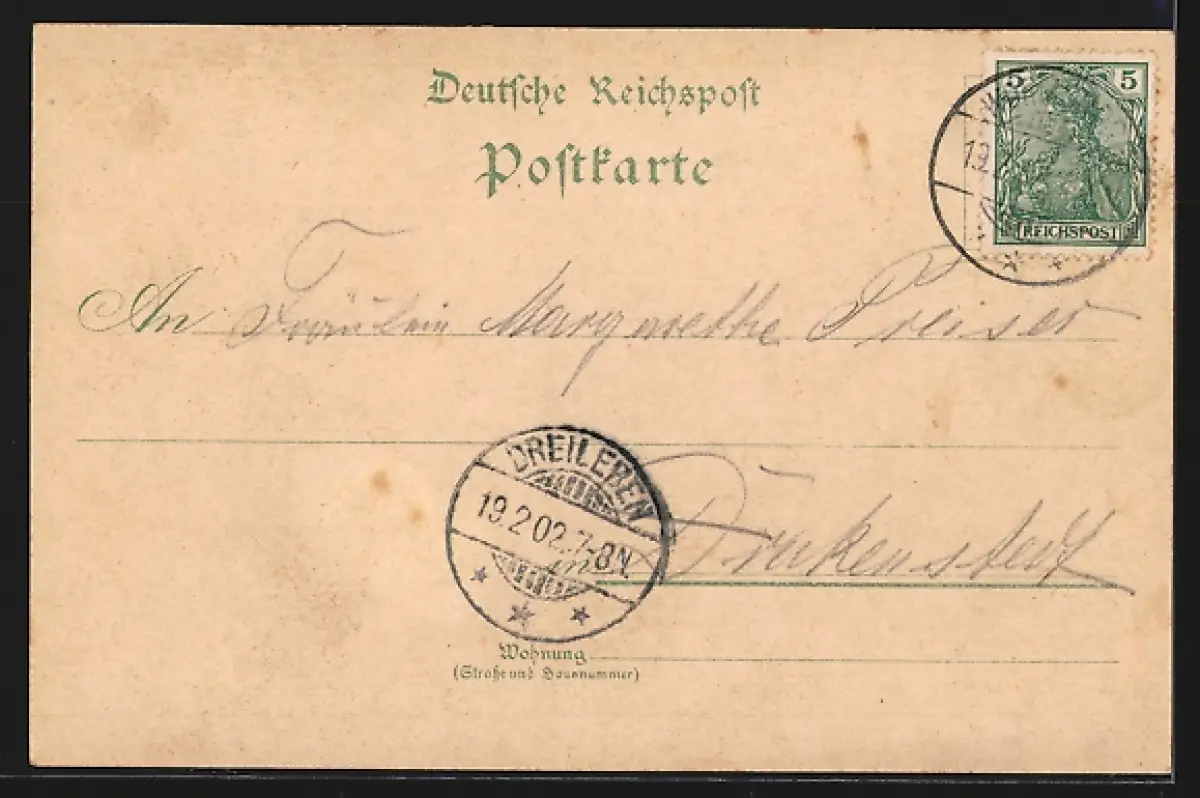 Deutsche Reichspost
Postkarte
5 5
REICHSPOST
19.
An Fräulein Margarethe Preiser
DREILEBEN
19.2.02.7-8N.
in
Wohnung
(Straße und Hausnummer)